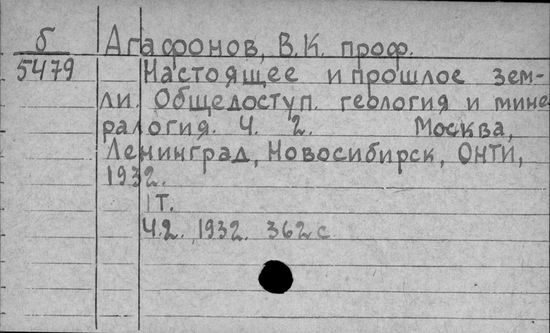 б Агафонов, В.К. проф.
5479 Настоящее и прошлое зем-
ли. Общедоступ. геология и мине
ралогия. Ч. 2. Москва,
Ленинград, Новосибирск, ОНТИ,
1932.
1т.
Ч.2. 1932. 362 с